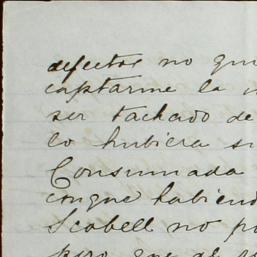 defectos no qui
captarme la
ser tachado de
lo hubiera si
Consumada
conque habiend
Scobell no p
pero que al